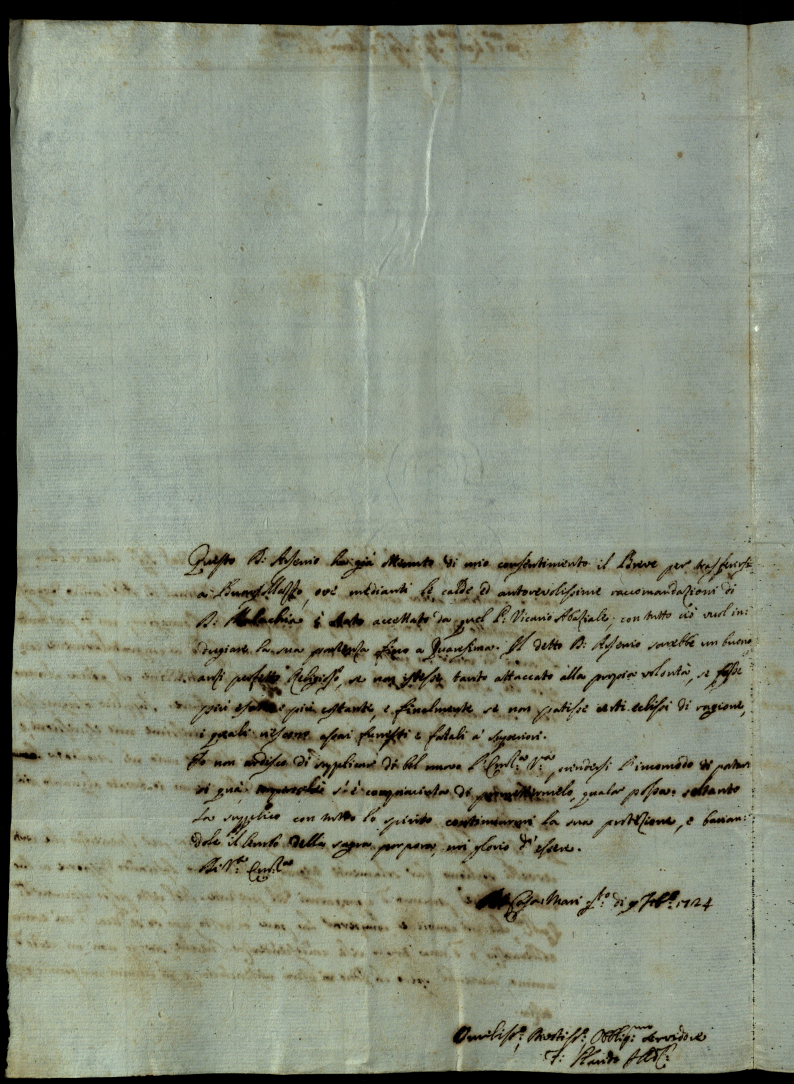 Questo D: Arsenio ha già ottenuto di mio consentimento il Breve per trasferirsi
a Buonsollazzo, ove medianti le calde ed autorevolissime raccomandazioni di
D: Malachia è stato accettato da quel P: Vicario Abaziale; con tutto ciò vuol in:
dugiare la sua partenza fino a Quaresima. Il detto D: Arsenio sarebbe un buono
anzi perfetto Religioso, se non istesse tanto attaccato alla propria volontà, se fosse
più più costante, e finalmente se non patisse certi eclissi di ragione,
i quali riescono assai funesti e fatali a' Superiori.
Io non ardisco di supplicar di bel nuovo l'Em:za V:ra prendersi l'incomodo di portar:
si quà, s'è compiaciuta di permettermelo, qualor possa: soltanto
La supplico con tutto lo spirito continuarmi la sua protezione, e bacian:
dole il lembo della sagra porpora, mi glorio d'essere.
Di V:ra Em:za
Casa Mari di 9 Feb:o 1724
Umiliss:o, Devotiss:o, Obblig:mo Servidore
F: